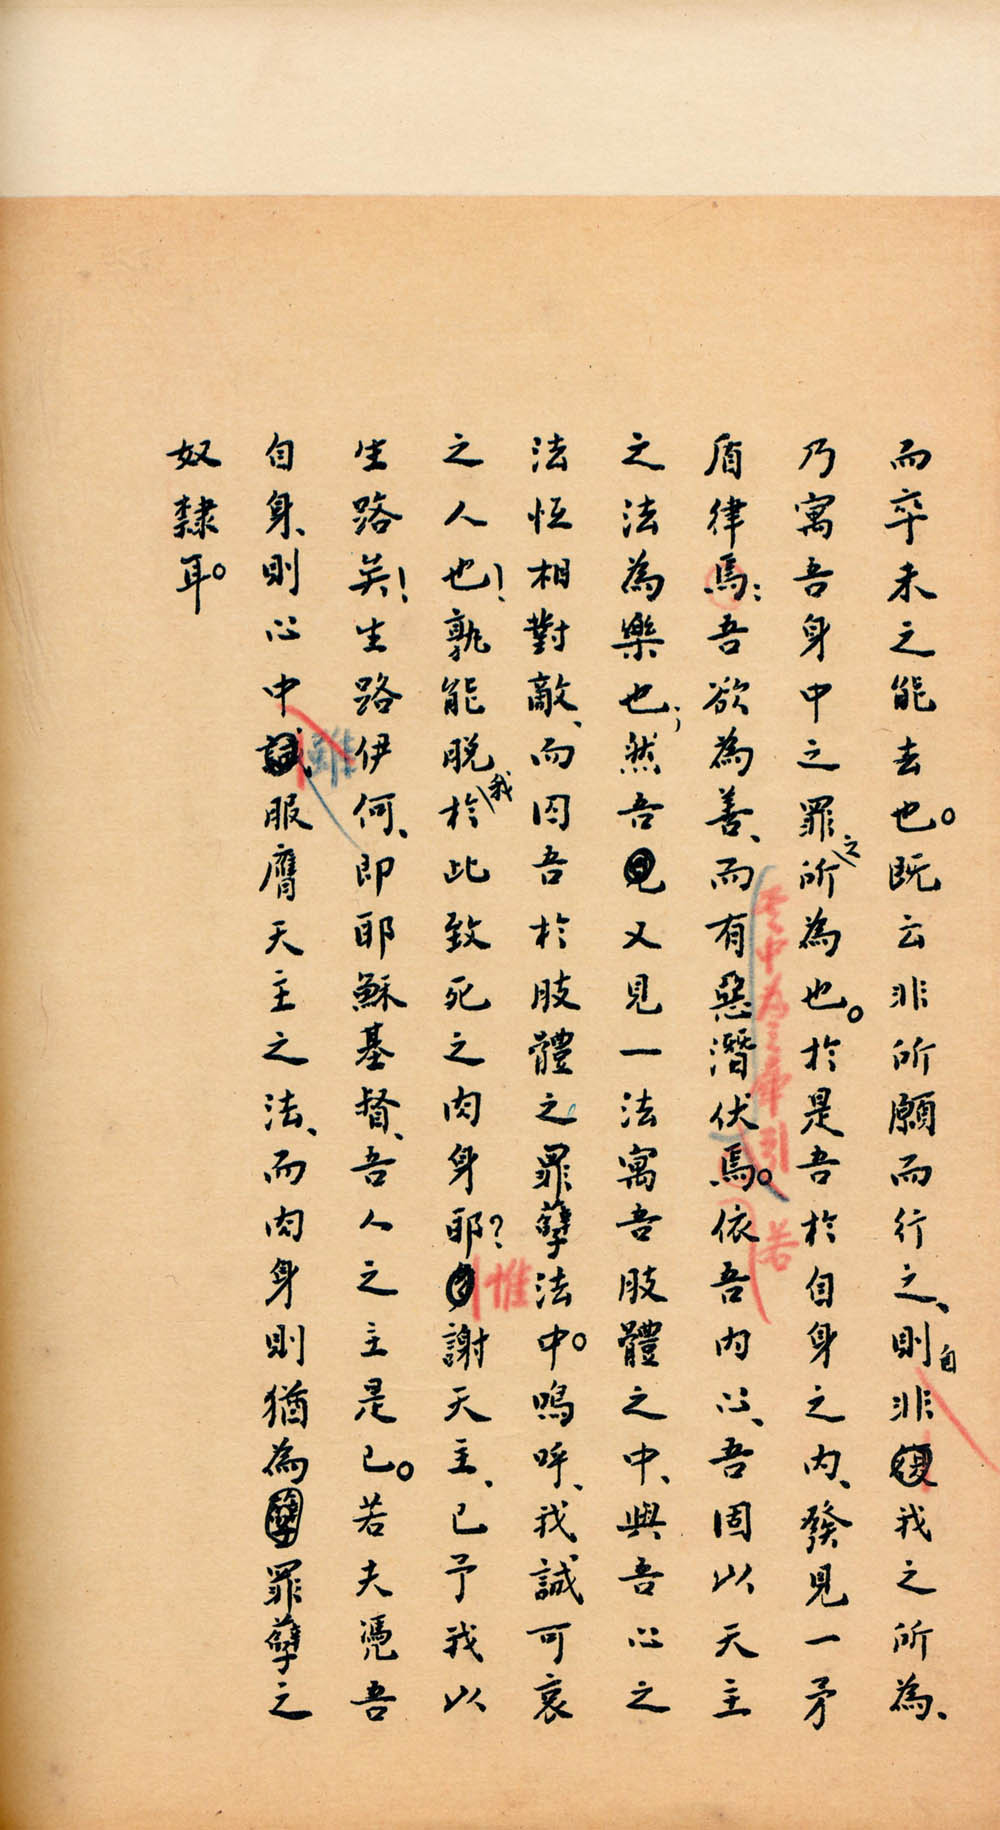 而卒未之能去也。既云非所願而行之、則自非復我之所為、
乃寓吾身中之罪之所為也。於是吾於自身之內、發見一矛
盾律焉：吾欲為善、而有惡潛伏焉。依吾內心、吾固以天主
之法為樂也；然吾見又見一法寓吾肢體之中、與吾心之
法恆相對敵、而囚吾於肢體之罪孽法中。嗚呼、我誠可哀
之人也！孰能脫我於此致死之肉身耶？謝天主、已予我以
生路矣！生路伊何、即耶穌基督、吾人之主是已。若夫憑吾
自身、則心中誠服膺天主之法、而肉身則猶為孽罪孽之
奴隸耳。
若
惟
雖